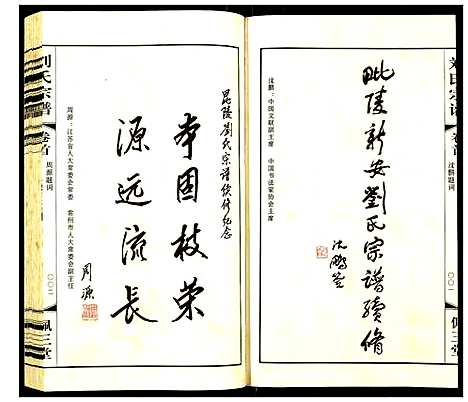 刘氏宗谱
卷首
沈鹏题词
〇〇一
佩三堂
沈鹏：中国文联副主席 中国书法家协会主席
毗陵新安劉氏宗譜續修
沈鵬签
昆陵劉氏宗谱续修纪念
本固枝荣
源远流长
周源
周源：江苏省人大常委会常委 常州市人大常委会副主任
刘氏宗谱
卷首
周源题词
〇〇二
佩三堂